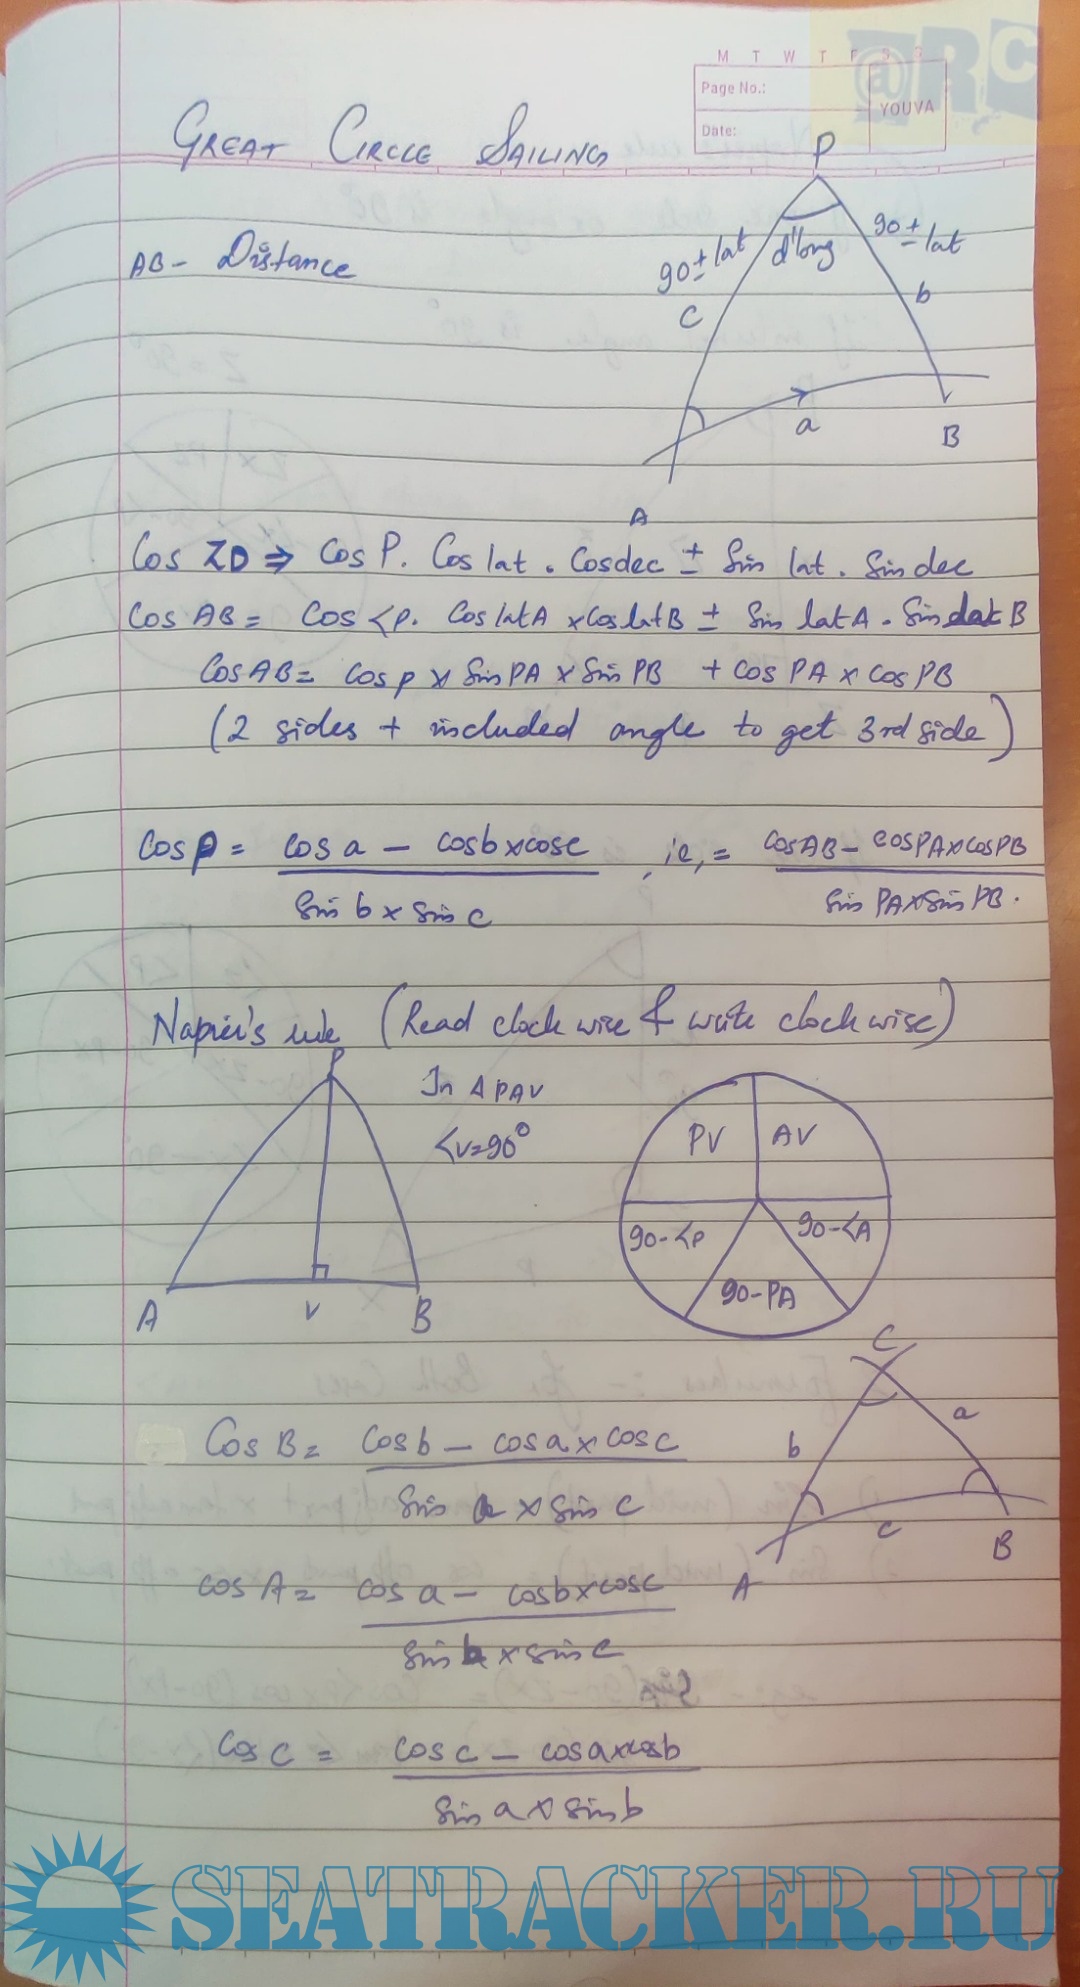 @RC
M T W T F S S
Page No.:
YOUVA
Date:
GREAT CIRCLE SAILING
P
90±lat
d'long
90±lat
AB- Distance
C
b
a
B
A
Cos ZD ⇒ Cos P. Cos lat . Cos dec ± Sin lat . Sin dec
Cos AB = Cos <P. Cos latA x cos latB ± Sin latA . Sin lat B
Cos AB = Cos P x Sin PA x Sin PB + cos PA x cos PB
(2 sides + included angle to get 3rd side)
Cos P = cos a - cos b x cos c , ie, = cos AB - cos PA x cos PB
Sin b x Sin c
Sin PA x Sin PB.
Napier's rule (Read clockwise & write clockwise)
P
In Δ PAV
<V=90°
PV
AV
90-<P
90-<A
90-PA
A
V
B
C
Cos B = Cos b - cos a x cos c
Sin a x Sin c
b
a
c
B
A
cos A = cos a - cos b x cos c
Sin b x sin c
Cos C = cos c - cos a x cos b
Sin a x Sin b
SEATRACKER.RU